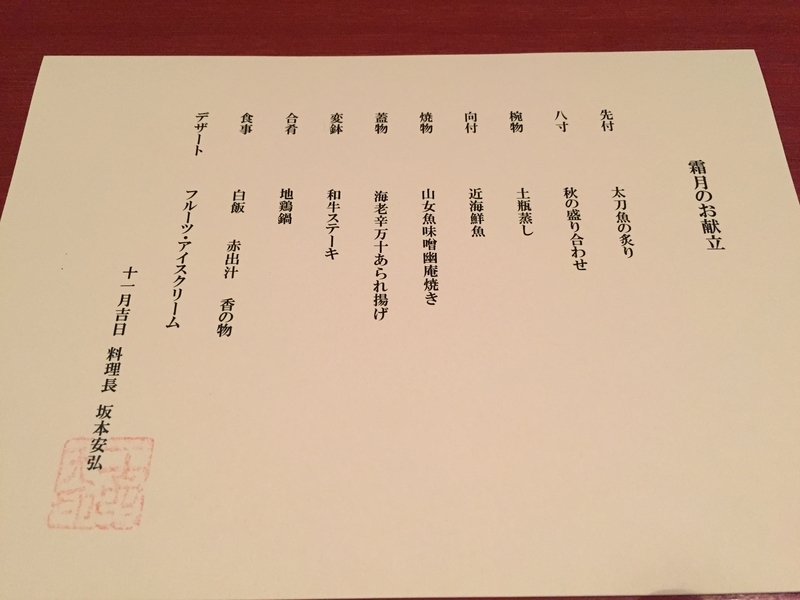 霜月のお献立
先付　太刀魚の炙り
八寸　秋の盛り合わせ
椀物　土瓶蒸し
向付　近海鮮魚
焼物　山女魚味噌幽庵焼き
蓋物　海老辛万十あられ揚げ
変鉢　和牛ステーキ
合肴　地鶏鍋
食事　白飯　赤出汁　香の物
デザート　フルーツ・アイスクリーム
十一月吉日　料理長　坂本安弘